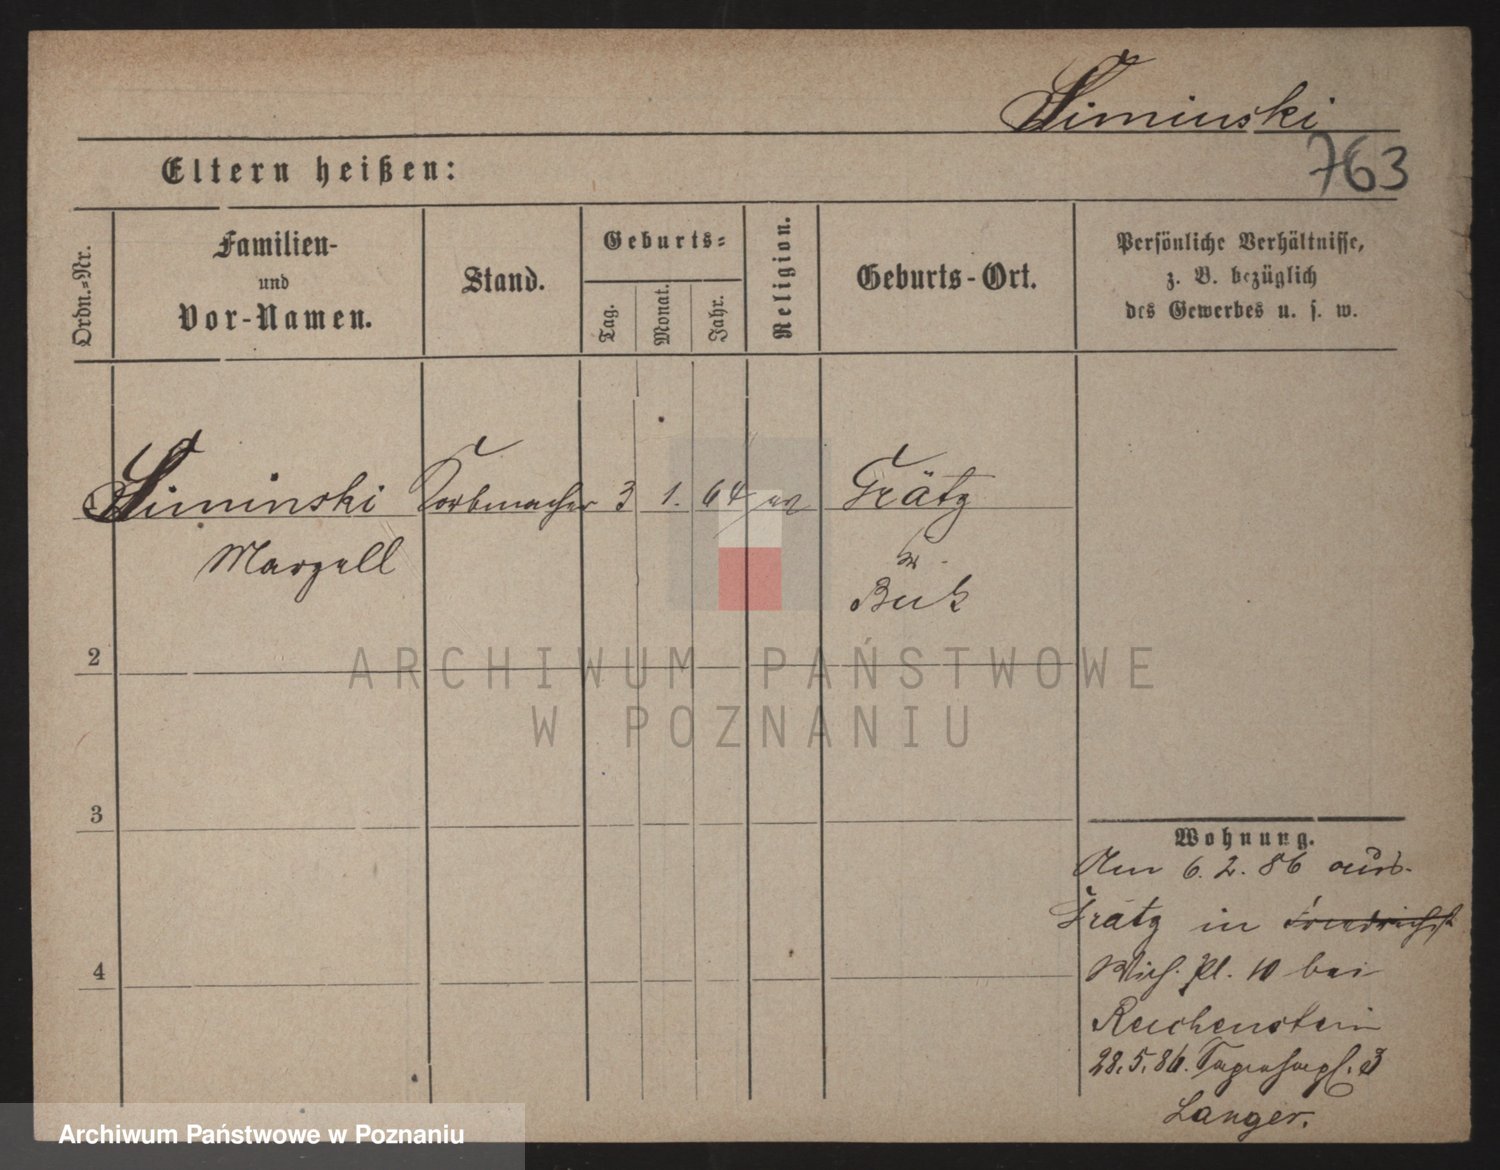 Siminski
763
Eltern heißen:
Ordn.-Nr.
Familien-
und
Vor-Namen.
Stand.
Geburts-
Tag.
Monat.
Jahr.
Religion.
Geburts-Ort.
Persönliche Verhältnisse,
z. B. bezüglich
des Gewerbes u. s. w.
Siminski Korbmacher 3 1. 64 Grätz
Marzell
Buk
2
3
4
ARCHIWUM PAŃSTWOWE
W POZNANIU
Wohnung.
Am 6. 2. 86 aus
Grätz in Friedrichst
Wich. Pl. 10 bei
Reichenstein
28. 5. 86. 3
Langer.
Archiwum Państwowe w Poznaniu